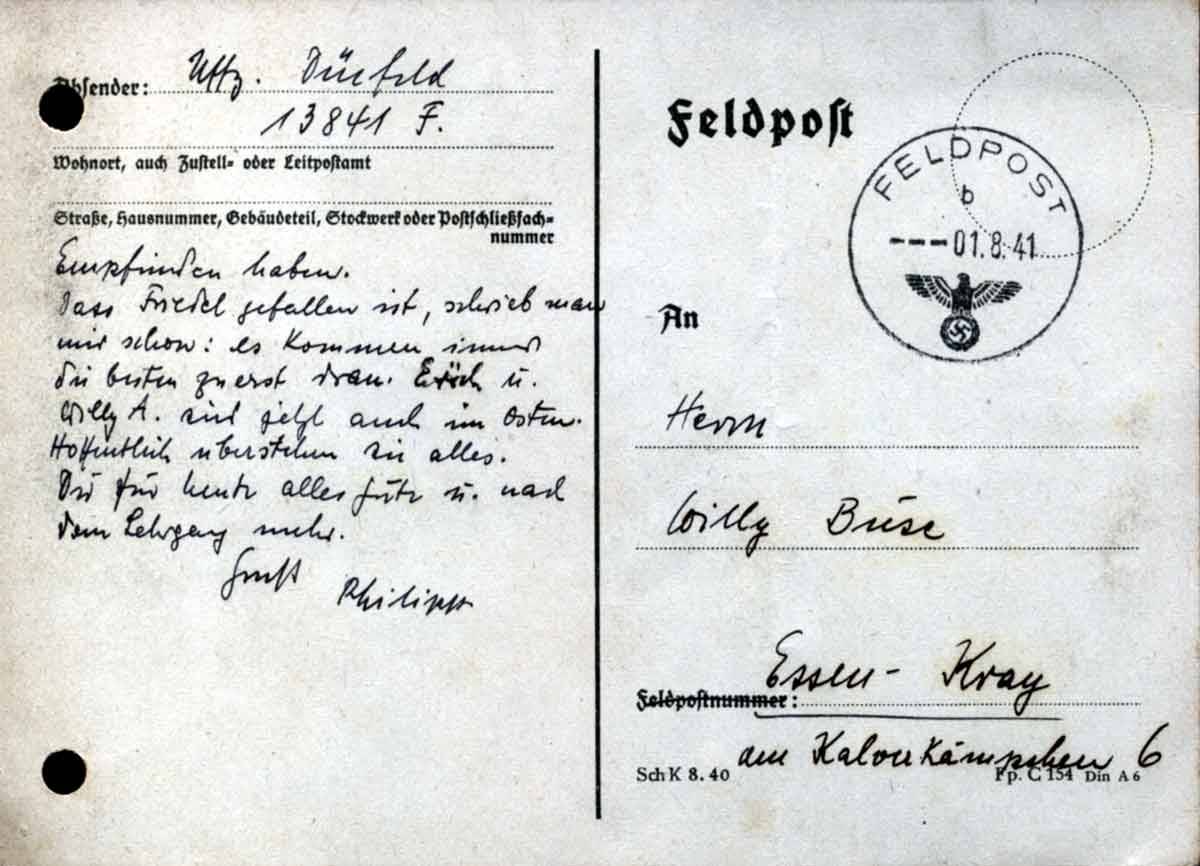 Absender: Uffz. Dürfeld
13841 F.
Wohnort, auch Zustell- oder Leitpostamt
Straße, Hausnummer, Gebäudeteil, Stockwerk oder Postschließfach-
nummer
Empfinden haben.
Dass Friedel gefallen ist, schrieb man
mir schon: es kommen immer
die besten zuerst dran. Erich u.
Willy A. sind jetzt auch im Osten.
Hoffentlich überstehen sie alles.
Dir für heute alles Gute u. nach
dem Lehrgang mehr.
Gruß
Philipp
Feldpost
FELDPOST
b
---01.8.41
An
Herrn
Willy Buse
Essen-Kray
Feldpostnummer:
am 6
Sch K 8. 40
Fp. C 154 Din A 6